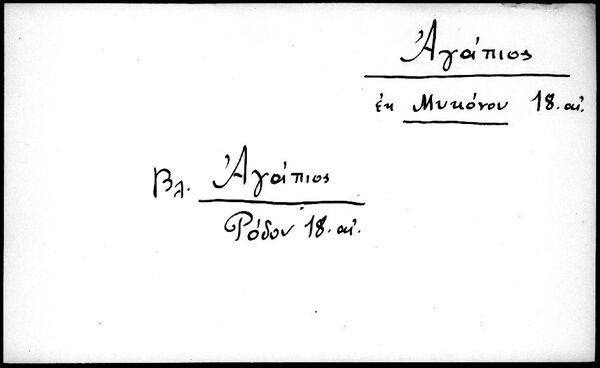 Ἀγάπιος
ἐκ Μυκόνου 18. αἰ.
Βλ. Ἀγάπιος
Ρόδου 18. αἰ.